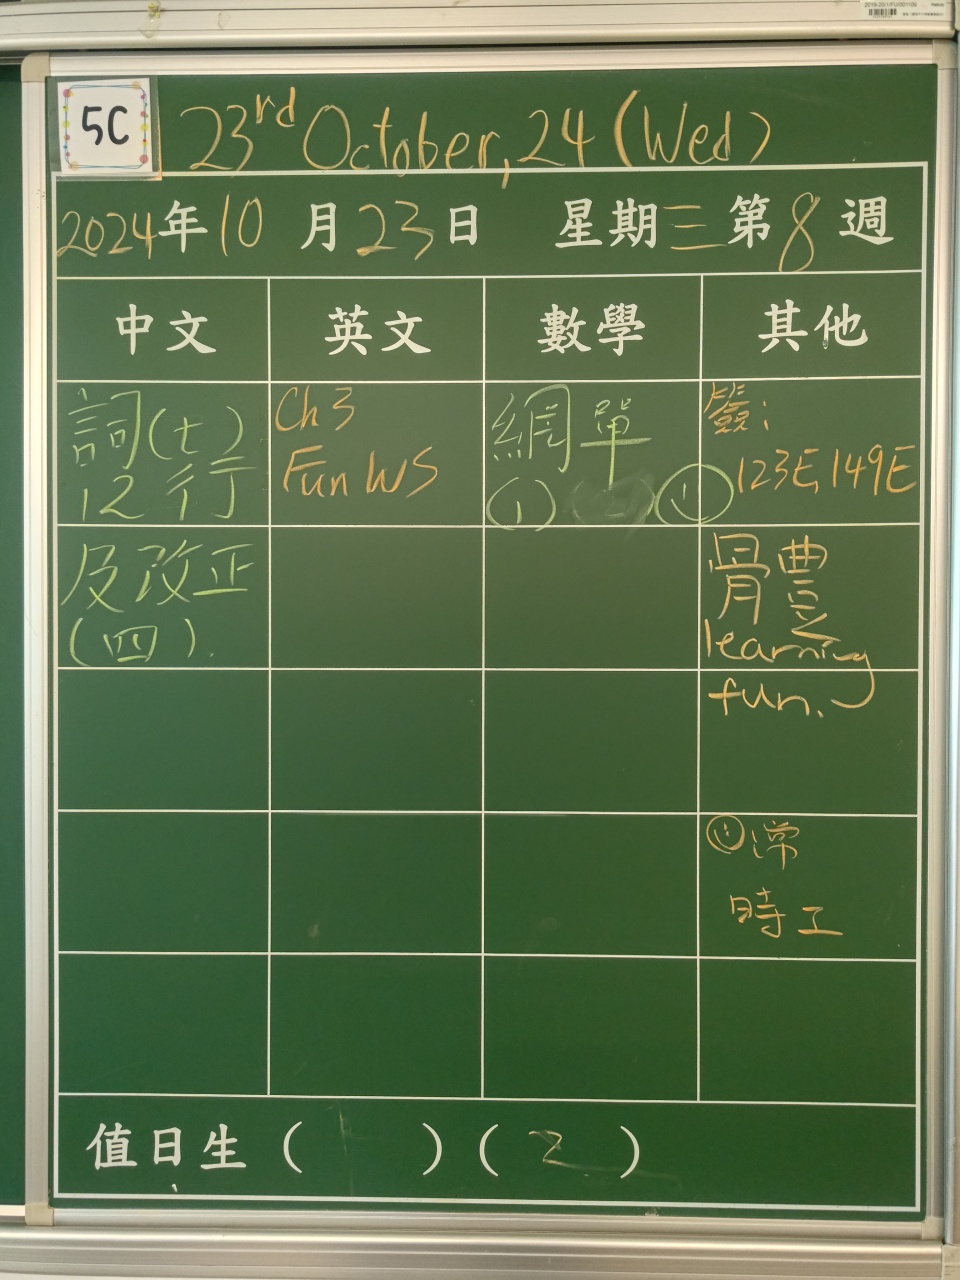 5C
23rd October, 24 (Wed)
2024年10月23日 星期三第8週
中文 英文 數學 其他
詞(七)
12行
及改正
(四).
Ch 3
Fun WS
網單
(1)
簽:
123E, 149E
learning
fun.
常
時工
值日生 ( ) ( 2 )